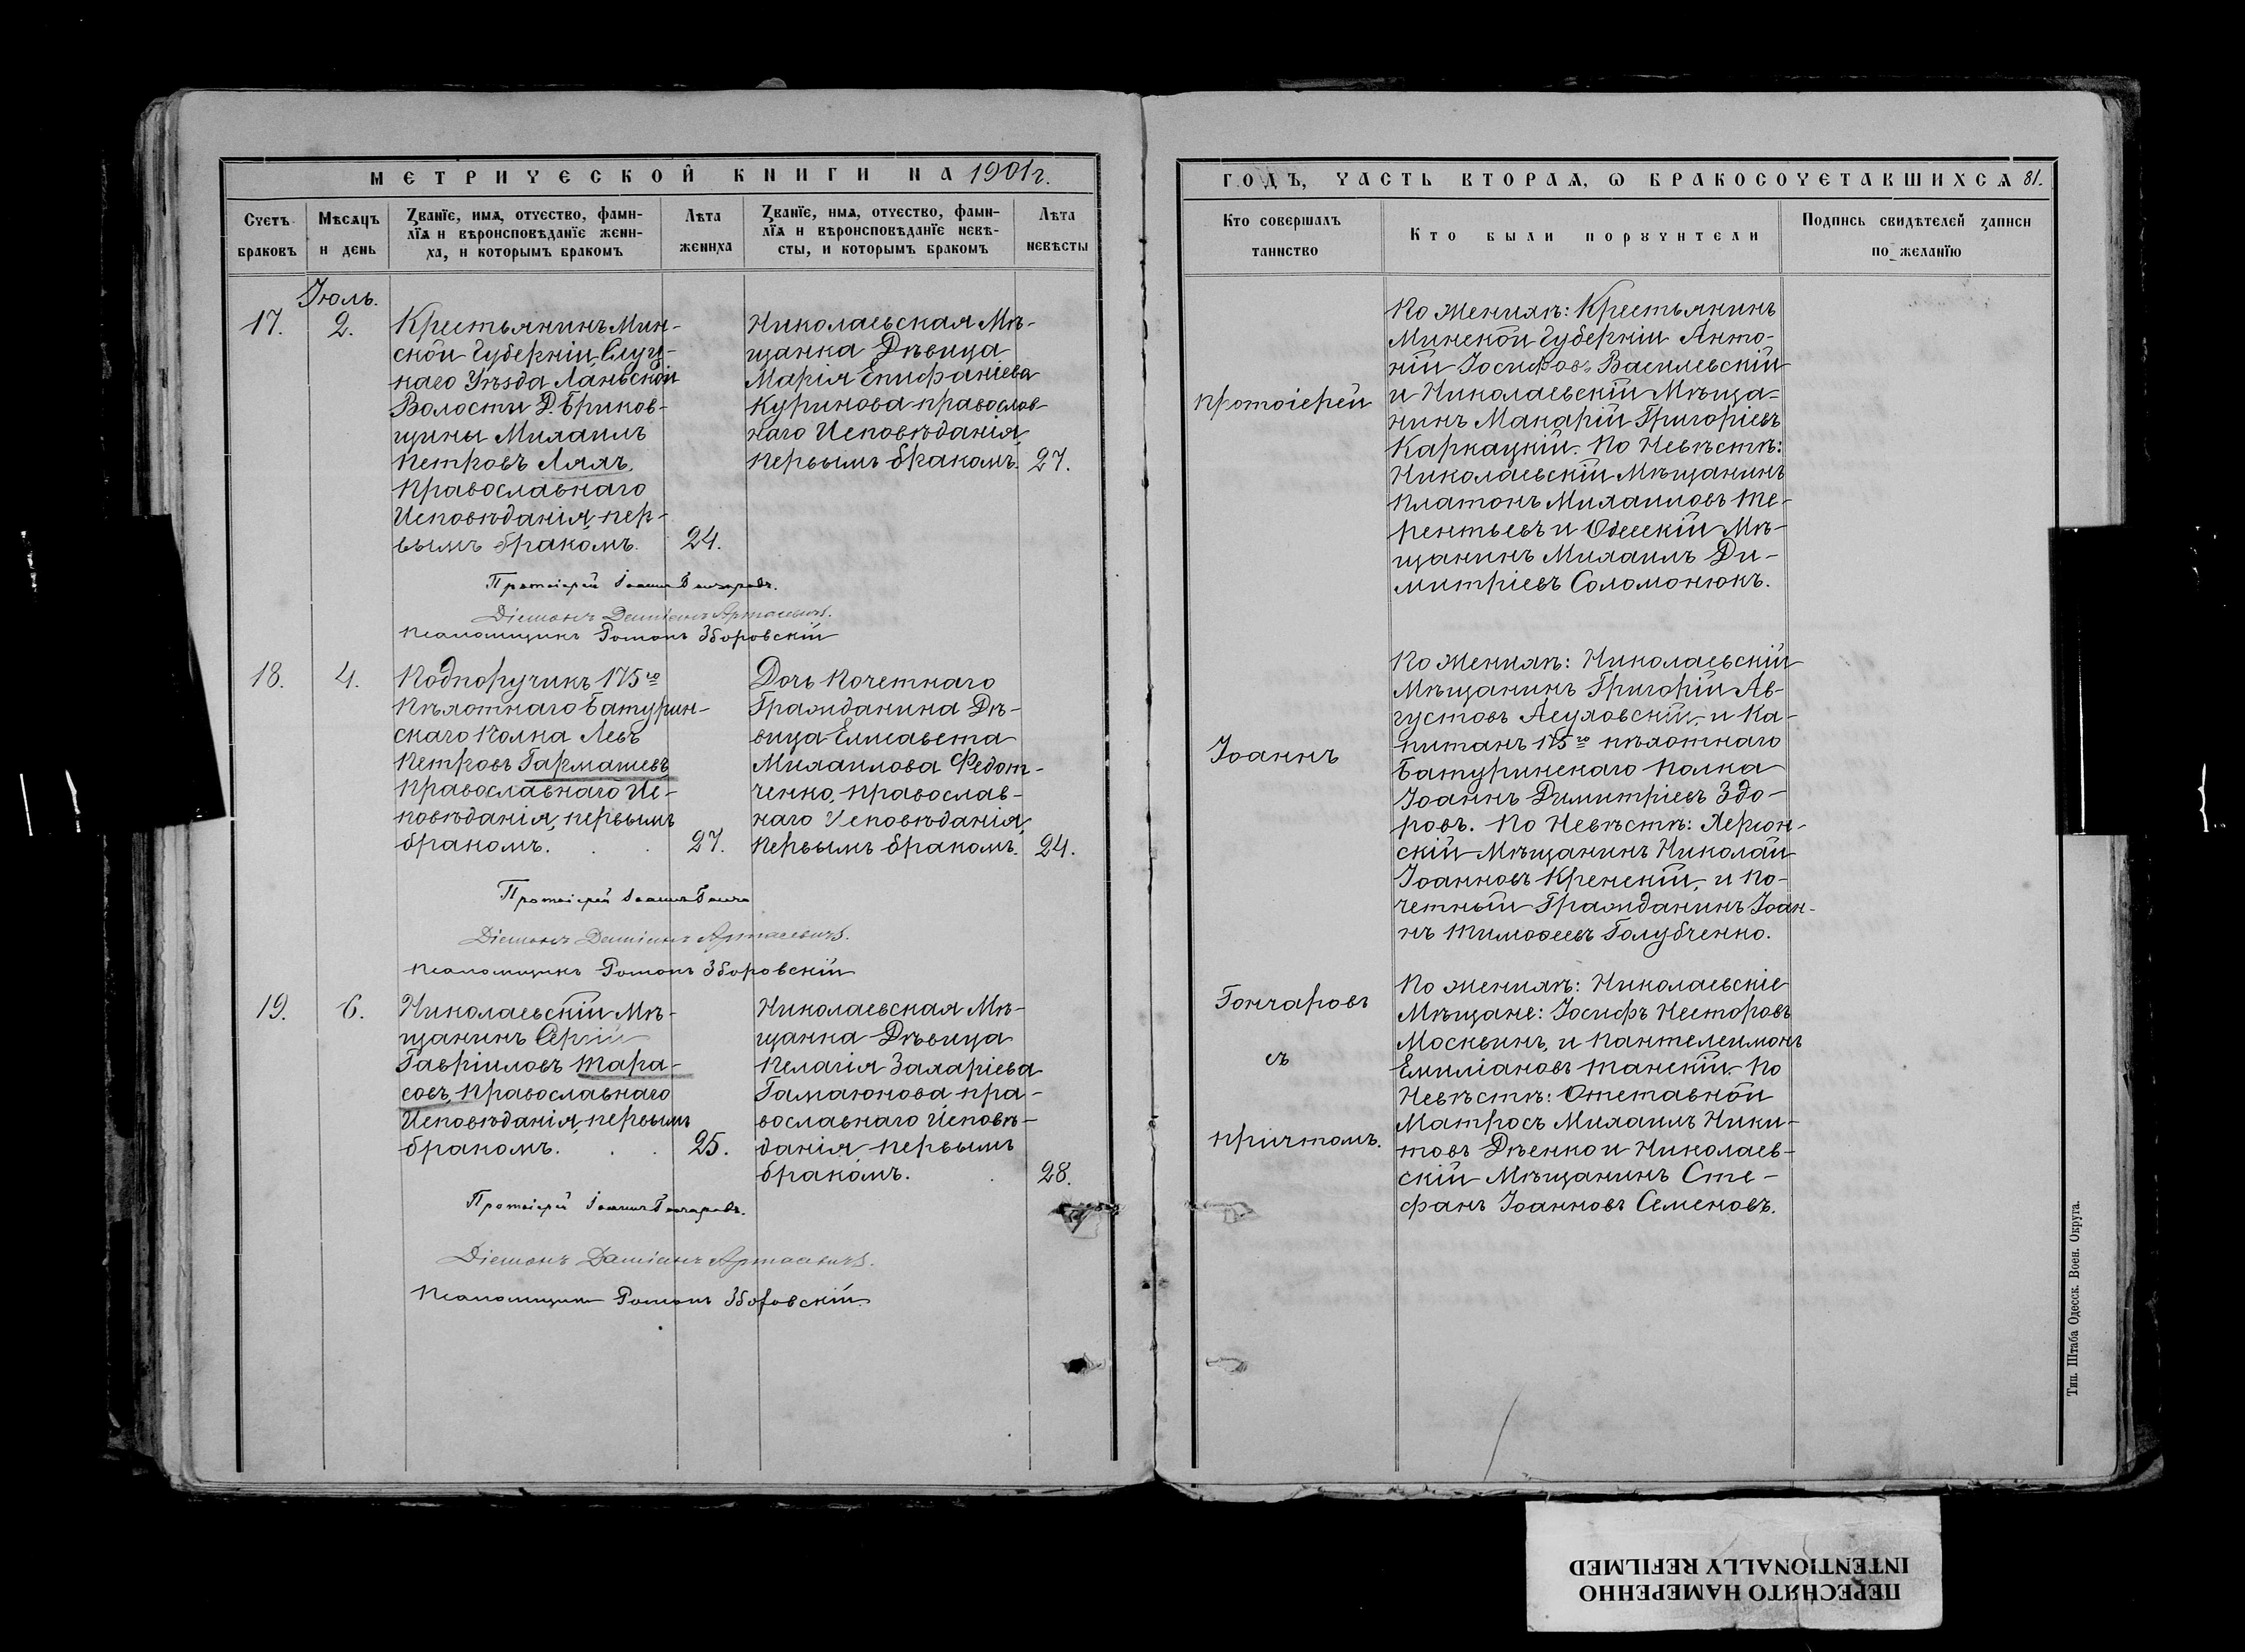 МЕТРИЧЕСКОЙ КНИГИ НА 1901 г.
Счетъ браковъ
Мѣсяцъ и день
Званїе, имя, отчество, фамилїя и вѣроисповѣданїе жениха, и которымъ бракомъ
Лѣта жениха
Званїе, имя, отчество, фамилїя и вѣроисповѣданїе невѣсты, и которымъ бракомъ
Лѣта невѣсты
Іюль.
17.
2.
Крестьянинъ Мин-
ской Губерніи Слуц-
каго Уѣзда Ланьской
Волости Д. Бриков-
щины Михаилъ
Петровъ Ляхъ,
Православнаго
Исповѣданія, пер-
вымъ бракомъ.
24.
Николаевская Мѣ-
щанка Дѣвица
Марія Епифаніева
Курикова православ-
наго Исповѣданія,
первымъ бракомъ.
27.
Протоіерей Іоаннъ Гончаровъ.
Діаконъ Даміанъ
Псаломщикъ Романъ Зборовскій
18.
4.
Подпоручикъ 175го
Пѣхотнаго Батурин-
скаго Полка Левъ
Петровъ Гармашевъ,
Православнаго Ис-
повѣданія, первымъ
бракомъ.
27.
Дочь Почетнаго
Гражданина Дѣ-
вица Елисавета
Михаилова Федот-
ченко, православ-
наго Исповѣданія,
первымъ бракомъ.
24.
Протоіерей Іоаннъ
Діаконъ Даміанъ
Псаломщикъ Романъ Зборовскій
19.
6.
Николаевскій Мѣ-
щанинъ Сергій
Гавріиловъ Тара-
совъ, Православнаго
Исповѣданія, первымъ
бракомъ.
25.
Николаевская Мѣ-
щанка Дѣвица
Пелагія Захаріева
Гамаюнова, пра-
вославнаго Исповѣ-
данія первымъ
бракомъ.
28.
Протоіерей Іоаннъ Гончаровъ.
Діаконъ Даміанъ
Псаломщикъ Романъ Зборовскій.
ГОДЪ, ЧАСТЬ ВТОРАЯ, Ѡ БРАКОСОЧЕТАВШИХСЯ 81.
Кто совершалъ таинство
Кто были порꙋчители
Подпись свидѣтелей записи по желанїю
Протоіерей
Іоаннъ
Гончаровъ
съ
причтомъ.
По женихѣ: Крестьянинъ
Минской Губерніи Анто-
ній Іосифовъ Василевскій
и Николаевскій Мѣща-
нинъ Макарій Григоріевъ
Каркацкій. По Невѣстѣ:
Николаевскій Мѣщанинъ
Платонъ Михаиловъ Те-
рентьевъ и Одесскій Мѣ-
щанинъ Михаилъ Ди-
митріевъ Соломонюкъ.
По женихѣ: Николаевскій
Мѣщанинъ Григорій Ав-
густовъ Асуловскій, и Ка-
питанъ 175го пѣхотнаго
Батуринскаго полка
Іоаннъ Димитріевъ Здо-
ровъ. По Невѣстѣ: Херсон-
скій Мѣщанинъ Николай
Іоанновъ Кренскій, и По-
четный Гражданинъ Іоан-
нъ Тимоѳеевъ Голубченко.
По женихѣ: Николаевскіе
Мѣщане: Іосифъ Несторовъ
Москвинъ, и Пантелеимонъ
Емиліановъ Танскій. По
Невѣстѣ: Отставной
Матросъ Михаилъ Ники-
товъ Дѣенко и Николаев-
скій Мѣщанинъ Сте-
фанъ Іоанновъ Семеновъ.
Тип. Штаба Одесск. Воен. Округа.
ПЕРЕСНЯТО НАМЕРЕННО
INTENTIONALLY REFILMED